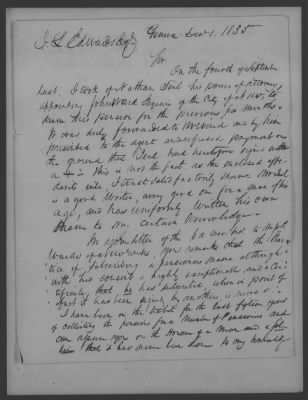 J. L. Edwards Esq. Geneva Decr 1. 1835
Sir
On the fourth of September
last. I took of Nathan Teed his power of attorney,
appointing John Ward Esquire of the City of
draw his pension for the previous six months.
It was duly forwarded to Mr Ward and by him
presented to the agent and refused payment on
the ground that Teed had heretofore signed with
a + this is not the fact as the enclosed
davits will, I trust satisfactorily shew. Mr Teed
is a good writer, very good on for a man of his
age, and has uniformly written his own
name to my certain knowledge.
In your letter of the to
Ward you remark that the "prac-
tice of subscribing a pensioners name although
with his consent is highly exceptionable, and a
that he has subscribed, when in point of
fact it has been signed by another, is more so."
I have been in the habit for the last fifteen years
of collecting the pensions for a number of Pensioners and
can assure you on the Honour of a Man and a
that it has never been done to my knowledge